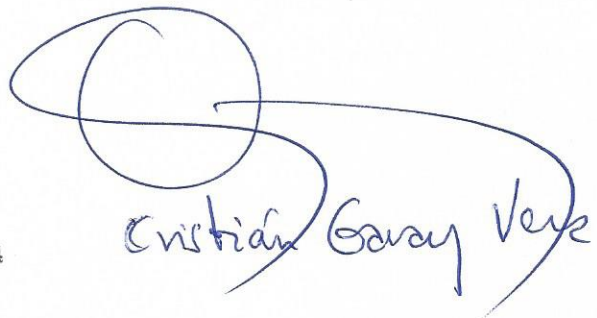 Cristián Garay Vera